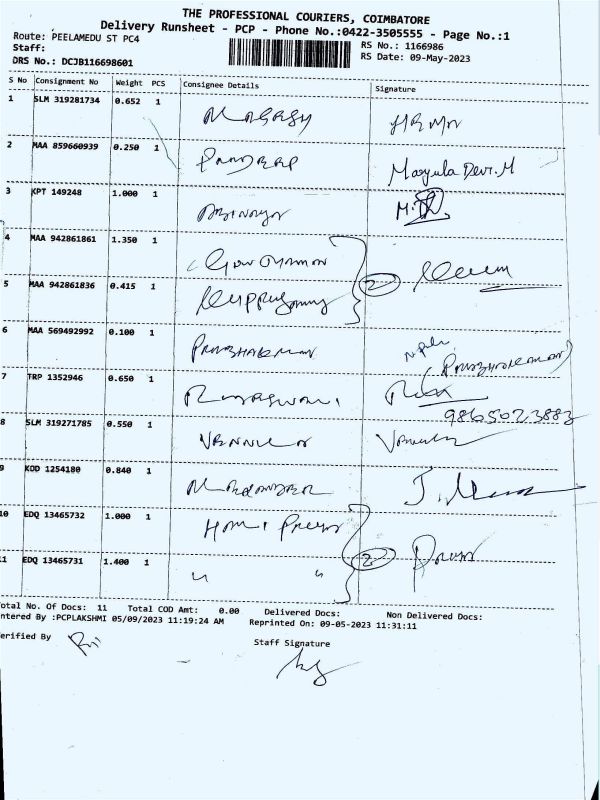 THE PROFESSIONAL COURIERS, COIMBATORE
Delivery Runsheet - PCP - Phone No.:0422-3505555 - Page No.:1
Route: PEELAMEDU ST PC4 RS No.: 1166986
Staff: RS Date: 09-May-2023
DRS No.: DCJB116698601
S No Consignment No Weight PCS Consignee Details Signature
1 SLM 319281734 0.652 1
2 MAA 859660939 0.250 1 PRADEEP Manjula Devi.M
3 KPT 149248 1.000 1 ABINAYA
4 MAA 942861861 1.350 1
5 MAA 942861836 0.415 1 KUPPUSAMY 2
6 MAA 569492992 0.100 1 PRABHAKARAN (PRABHAKARAN)
7 TRP 1352946 0.650 1
9865023883
8 SLM 319271785 0.550 1 VENNILA
9 KOD 1254180 0.840 1
10 EDQ 13465732 1.000 1 HARI PRIYA
11 EDQ 13465731 1.400 1 " " 2 Priya
Total No. Of Docs: 11 Total COD Amt: 0.00 Delivered Docs: Non Delivered Docs:
ntered By :PCPLAKSHMI 05/09/2023 11:19:24 AM Reprinted On: 09-05-2023 11:31:11
erified By Staff Signature